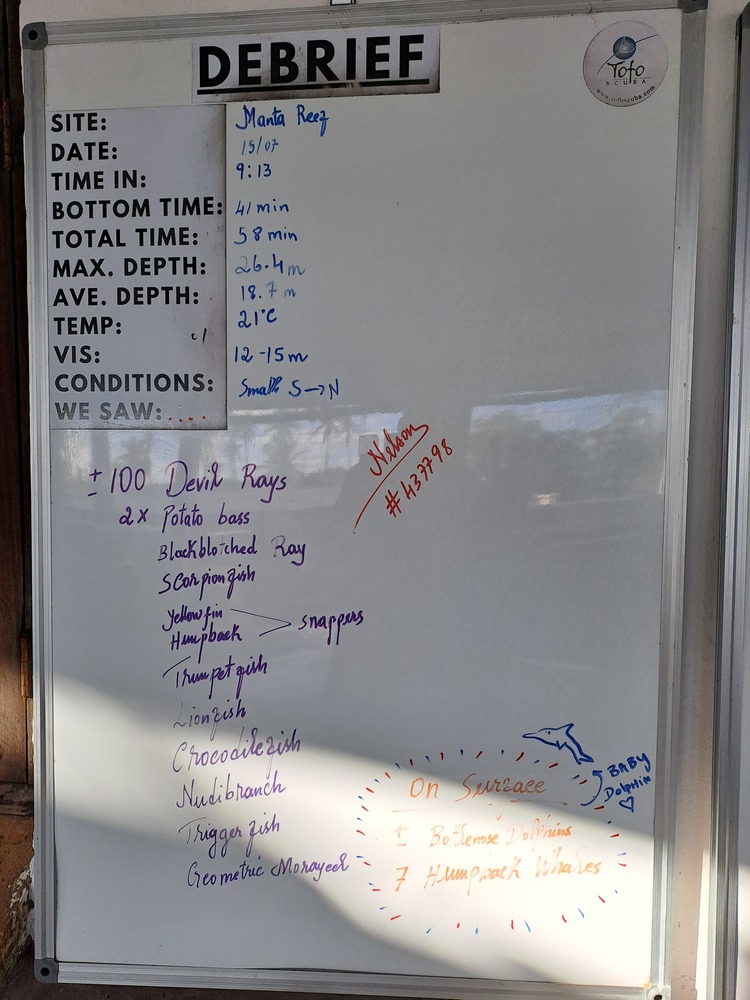 DEBRIEF
Tofo
SCUBA
www.tofoscuba.com
SITE: Manta Reef
DATE: 15/07
TIME IN: 9:13
BOTTOM TIME: 41 min
TOTAL TIME: 58 min
MAX. DEPTH: 26.4m
AVE. DEPTH: 18.7 m
TEMP: 21°C
VIS: 12-15m
CONDITIONS: Small S→N
WE SAW:....
Nelson
#437798
± 100 Devil Rays
2x Potato bass
Blackblotched Ray
Scorpionfish
Yellowfin
Humpback
snappers
Trumpetfish
Lionfish
Crocodilefish
Nudibranch
Triggerfish
Geometric Morayeel
BABY
Dolphin
♡
On Surface
± Bottlenose Dolphins
7 Humpback Whales